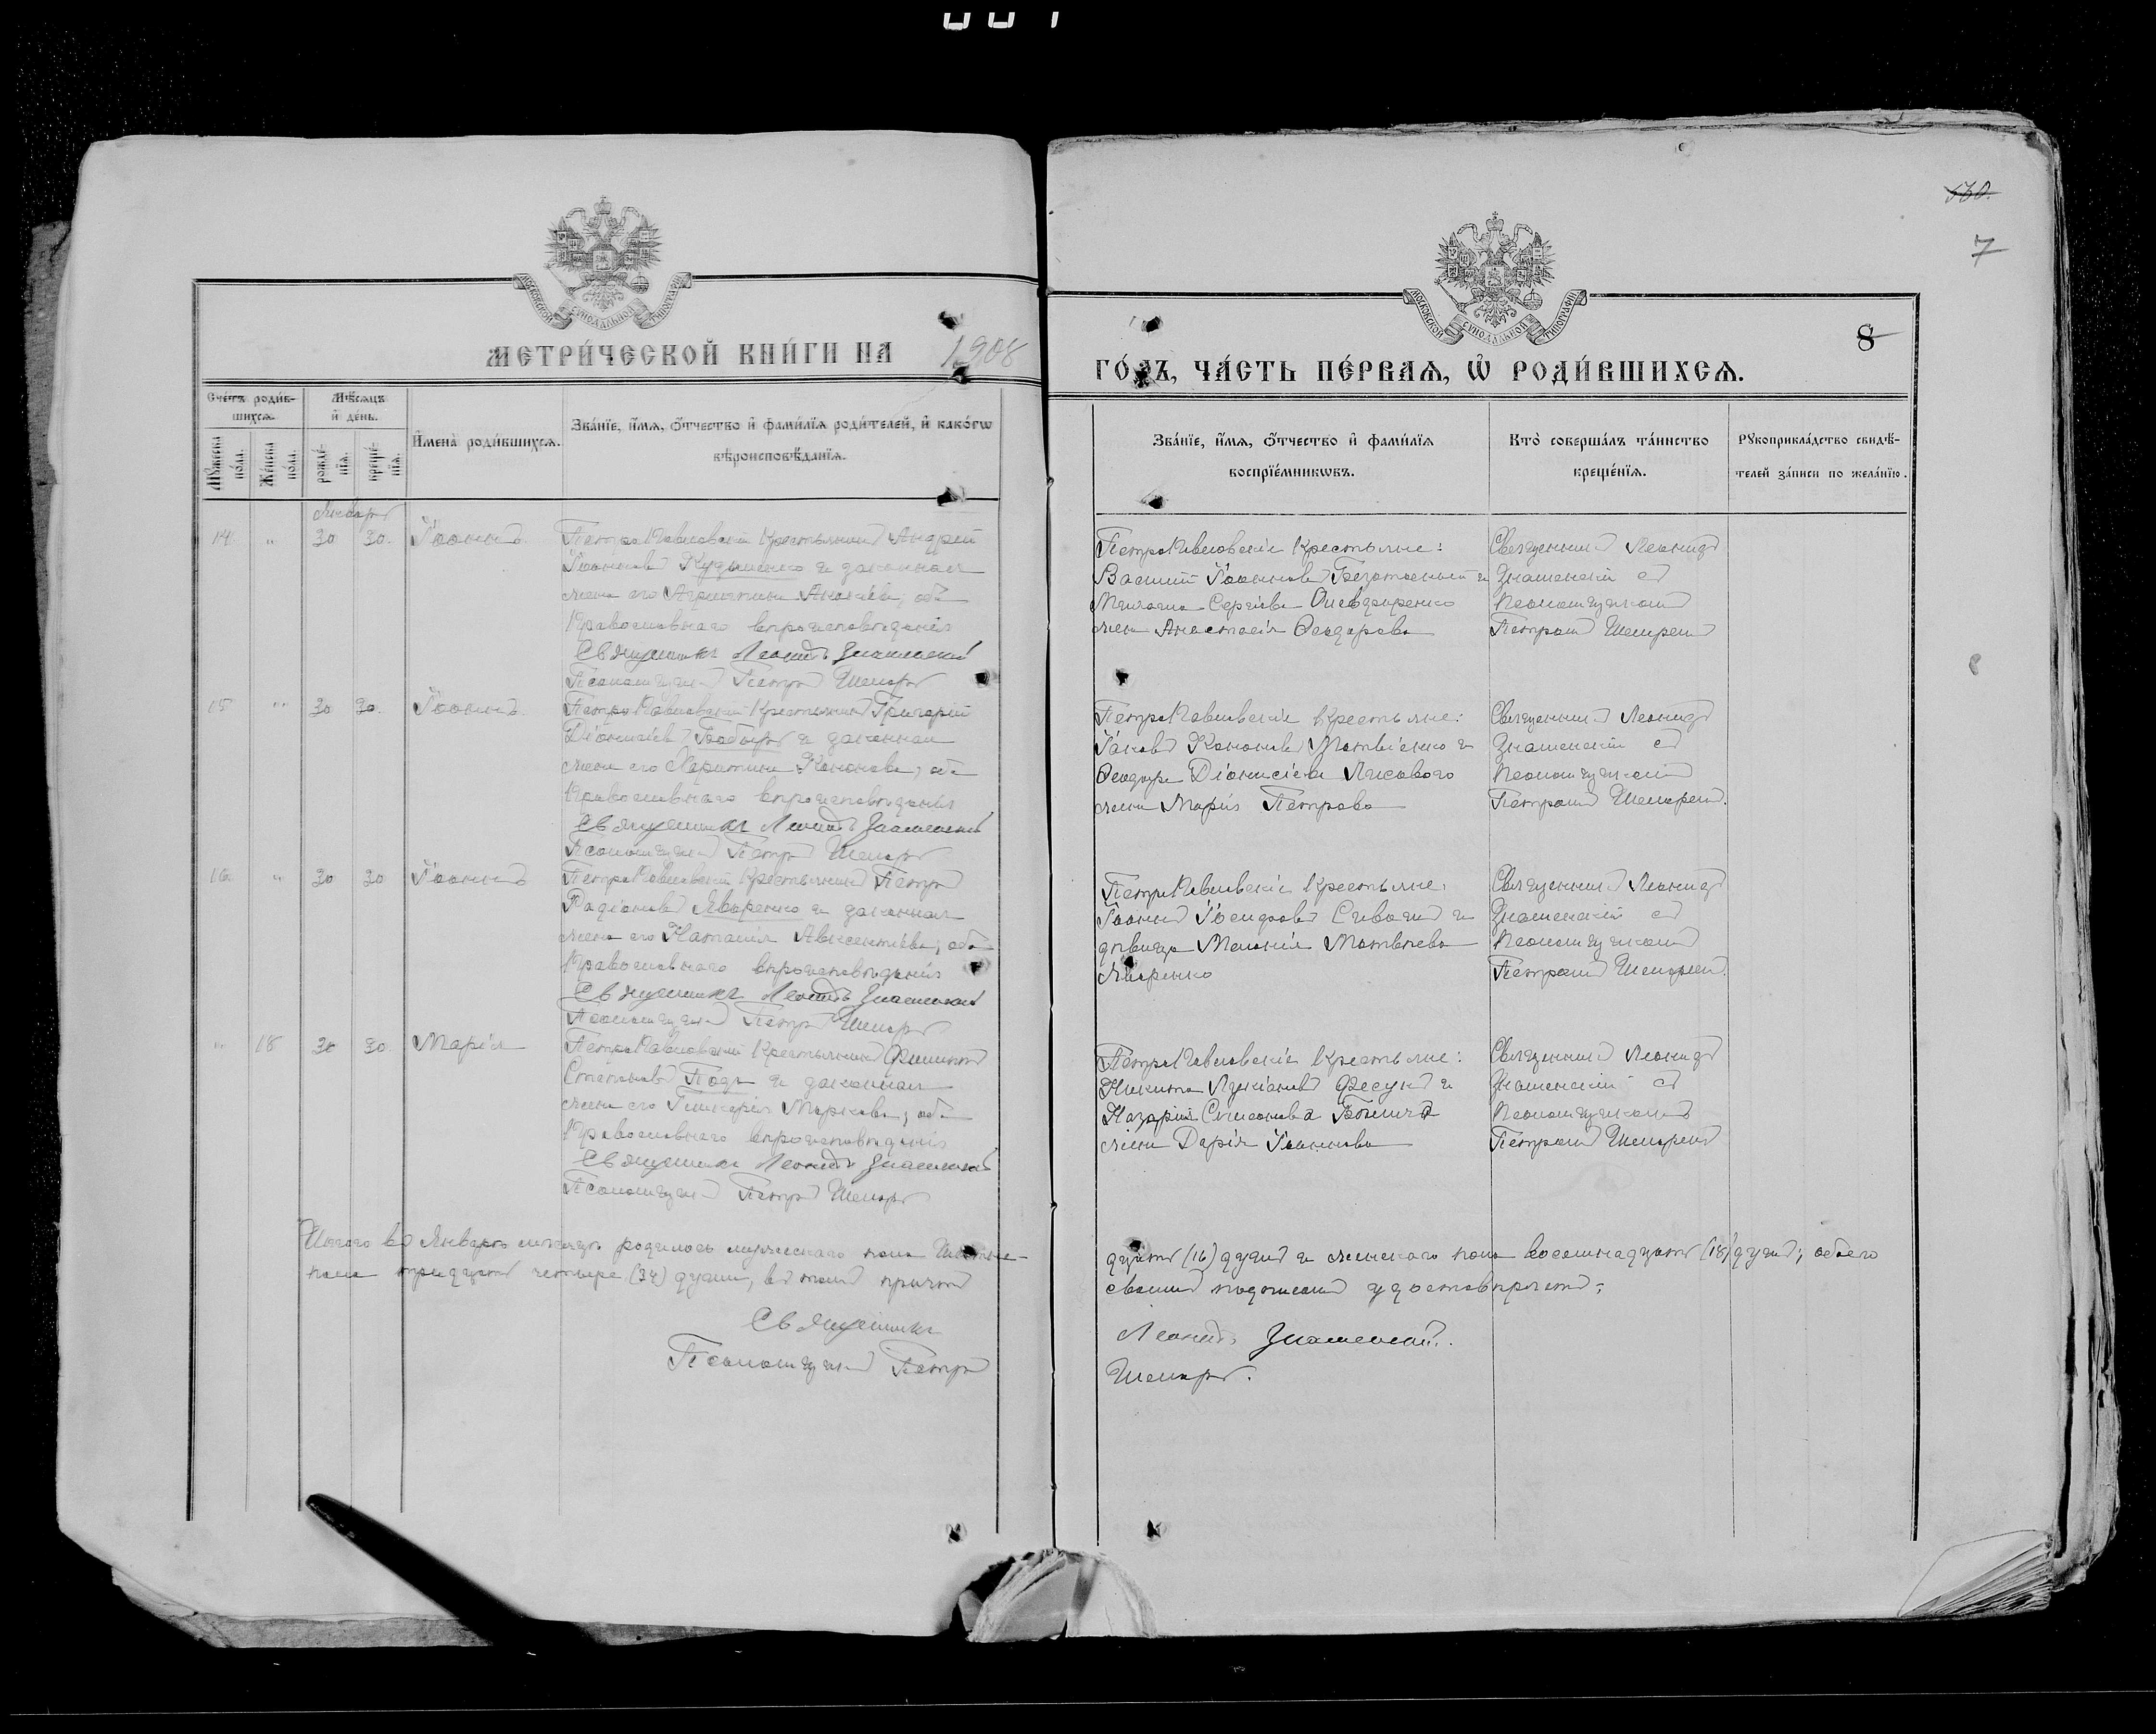 530.
7
МОСКОВСКОЙ СѴНОДАЛЬНОЙ ТИПОГРАФІИ
МОСКОВСКОЙ СѴНОДАЛЬНОЙ ТИПОГРАФІИ
8
МЕТРИ́ЧЕСКОЙ КНИ́ГИ НА 1908
ГО́ДЪ, ЧА́СТЬ ПЕ́РВАѦ, Ѡ҆ РОДИ́ВШИХСѦ.
Счетъ роди́в-
шихсѧ.
Мꙋжеска
по́ла.
Же́нска
пола.
Мѣ́сѧцъ
и҆ день.
рожде́-
нїѧ.
креще́-
нїѧ.
И҆мена̀ роди́вшихсѧ.
Зва́нїе, и҆́мѧ, ѻ҆́тчество и҆ фами́лїѧ роди́телей, и҆ како́гѡ
вѣроисповѣ́данїѧ.
Зва́нїе, и҆́мѧ, ѻ҆́тчество и҆ фами́лїѧ
воспрїе́мникѡвъ.
Кто̀ соверша́лъ та́инство
креще́нїѧ.
Рꙋкоприкла́дство свидѣ́-
телей за́писи по жела́нїю.
Январь
14 " 30 30. Іоаннъ.
Петро Павловскій крестьянинъ Андрей
Іоанновъ и законная
жена его Агриппина оба
Православнаго вѣроисповѣданія
Священникъ Леонидъ Знаменскій
Псаломщикъ Петръ
Петро Павловскіе крестьяне:
Василій Іоанновъ и
Сергіева
жена Анастасія Феодорова
Священникъ Леонидъ
Знаменскій съ
Псаломщикомъ
Петромъ
15 " 30 30. Іоаннъ.
Петро Павловскій крестьянинъ Григорій
Діонисіевъ и законная
жена его Харитина Кононова, оба
Православнаго вѣроисповѣданія
Священникъ Леонидъ Знаменскій
Псаломщикъ Петръ
Петро Павловскіе крестьяне:
Іаковъ Кононовъ Матвіенко и
Феодора Діонисіева Лисового
жена Марія Петрова
Священникъ Леонидъ
Знаменскій съ
Псаломщикомъ
Петромъ
16 " 30 30 Іоаннъ
Петро Павловскій крестьянинъ Петръ
Родіоновъ Яворенко и законная
жена его Наталія Авксентіева, оба
Православнаго вѣроисповѣданія
Священникъ Леонидъ Знаменскій
Псаломщикъ Петръ
Петро Павловскіе крестьяне:
Іоаннъ Іосифовъ и
дѣвица Меланія Матвѣева
Священникъ Леонидъ
Знаменскій съ
Псаломщикомъ
Петромъ
" 18 30 30 Марія
Петро Павловскій крестьянинъ Филиппъ
Стефановъ и законная
жена его Гликерія Маркова, оба
Православнаго вѣроисповѣданія
Священникъ Леонидъ Знаменскій
Псаломщикъ Петръ
Петро Павловскіе крестьяне:
Никита Лукіановъ Фесунъ и
Назарія Симонова
жена Дарія Іоаннова
Священникъ Леонидъ
Знаменскій съ
Псаломщикомъ
Петромъ
Итого въ Январѣ мѣсяцѣ родилось мужескаго пола шестнад-
цать (16) душъ и женскаго пола восемнадцать (18) душъ; обоего
пола тридцать четыре (34) души, въ томъ причтъ
своимъ подписомъ удостовѣряетъ:
Священникъ Леонидъ Знаменскій.
Псаломщикъ Петръ